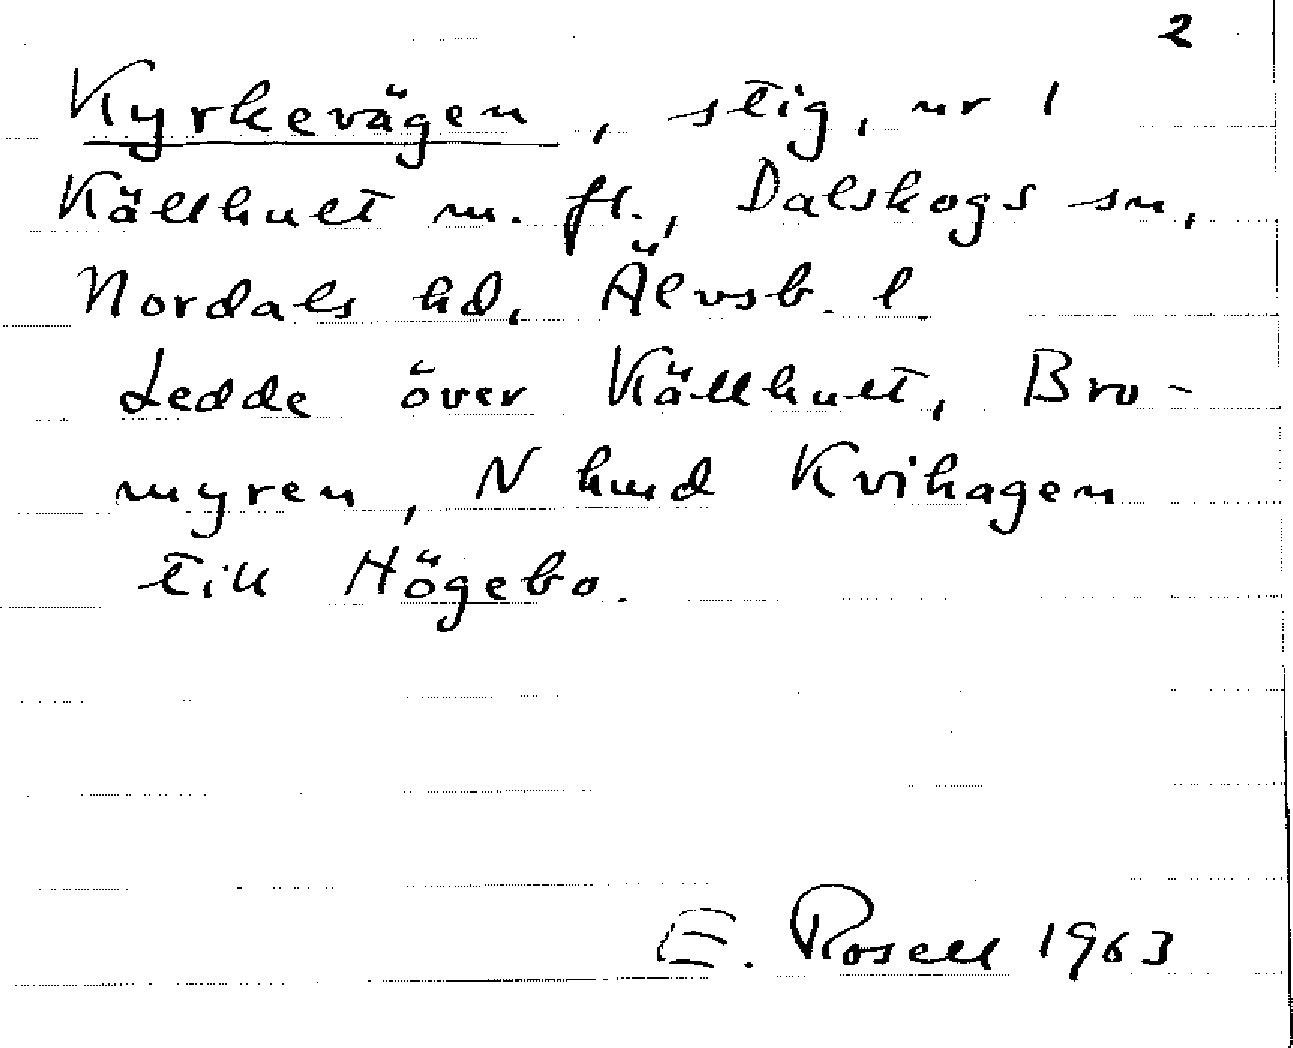 2
Kyrkevägen, stig, nr 1
Källhult m. fl., Dalskogs sn,
Nordals hd, Älvsb. l.
Ledde över Källhult, Bro-
myren, N hmd Kvihagen
till Högebo.
E. Rosell 1963